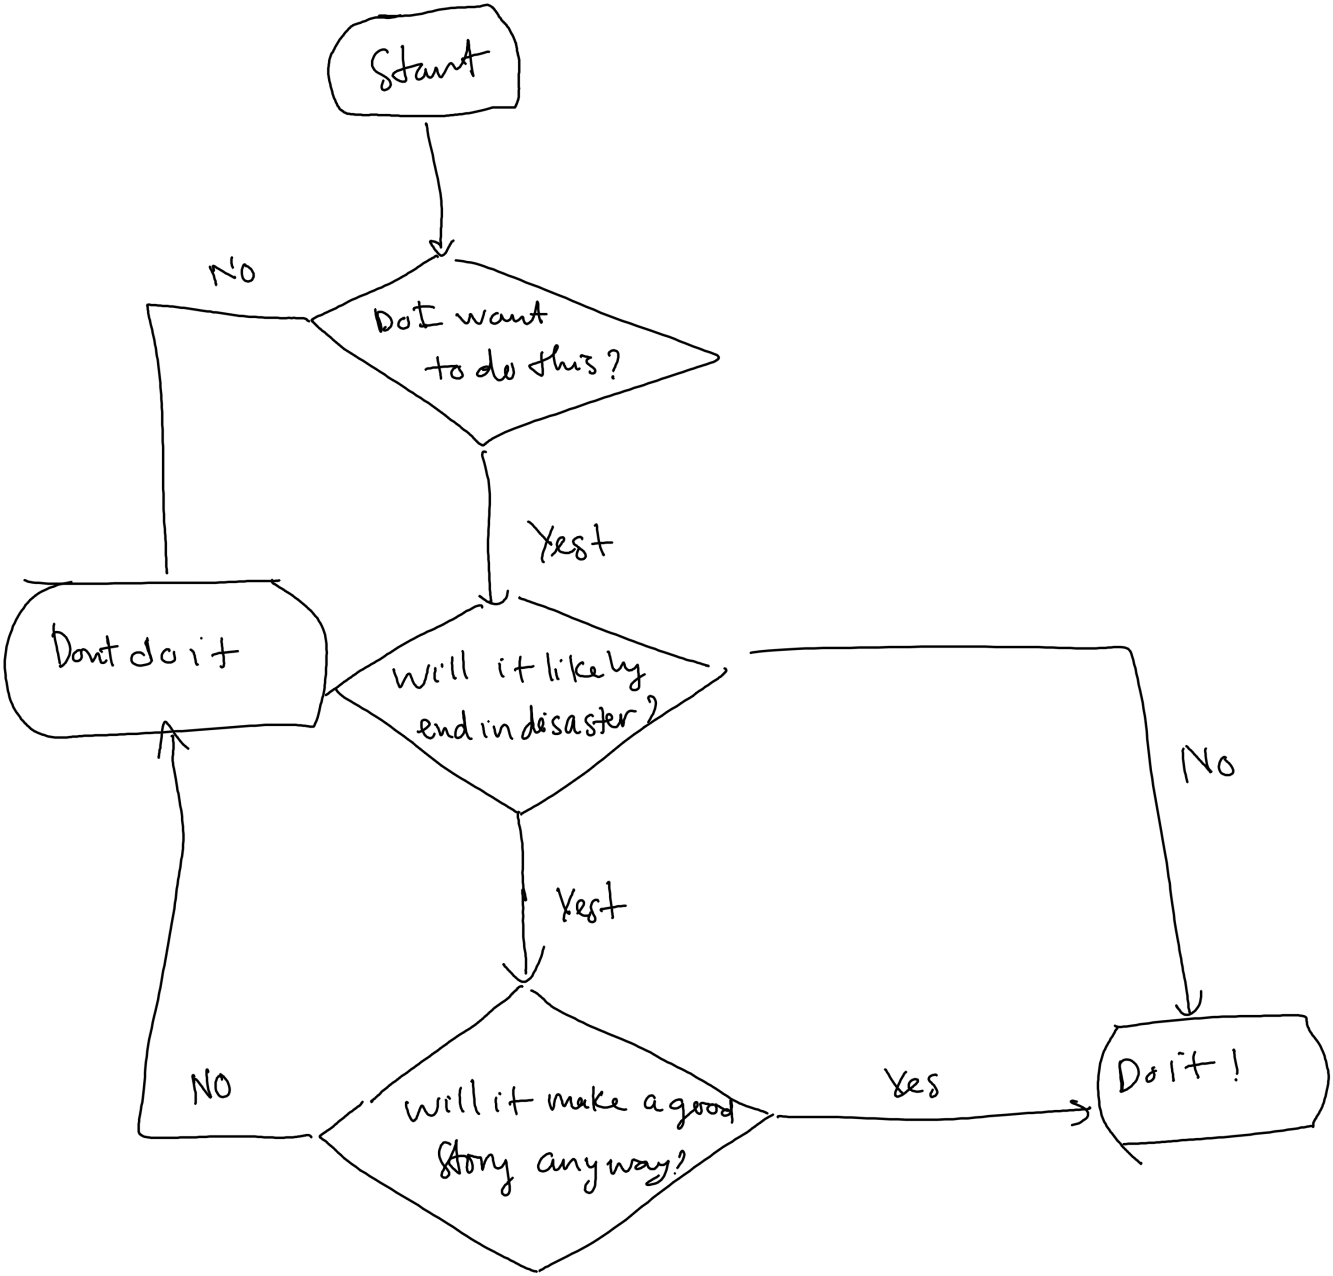 Start
No
Do I want
to do this?
Yest
Dont do it
Will it likely
end in disaster?
No
Yest
No
Will it make a good
story anyway?
Yes
Do it!